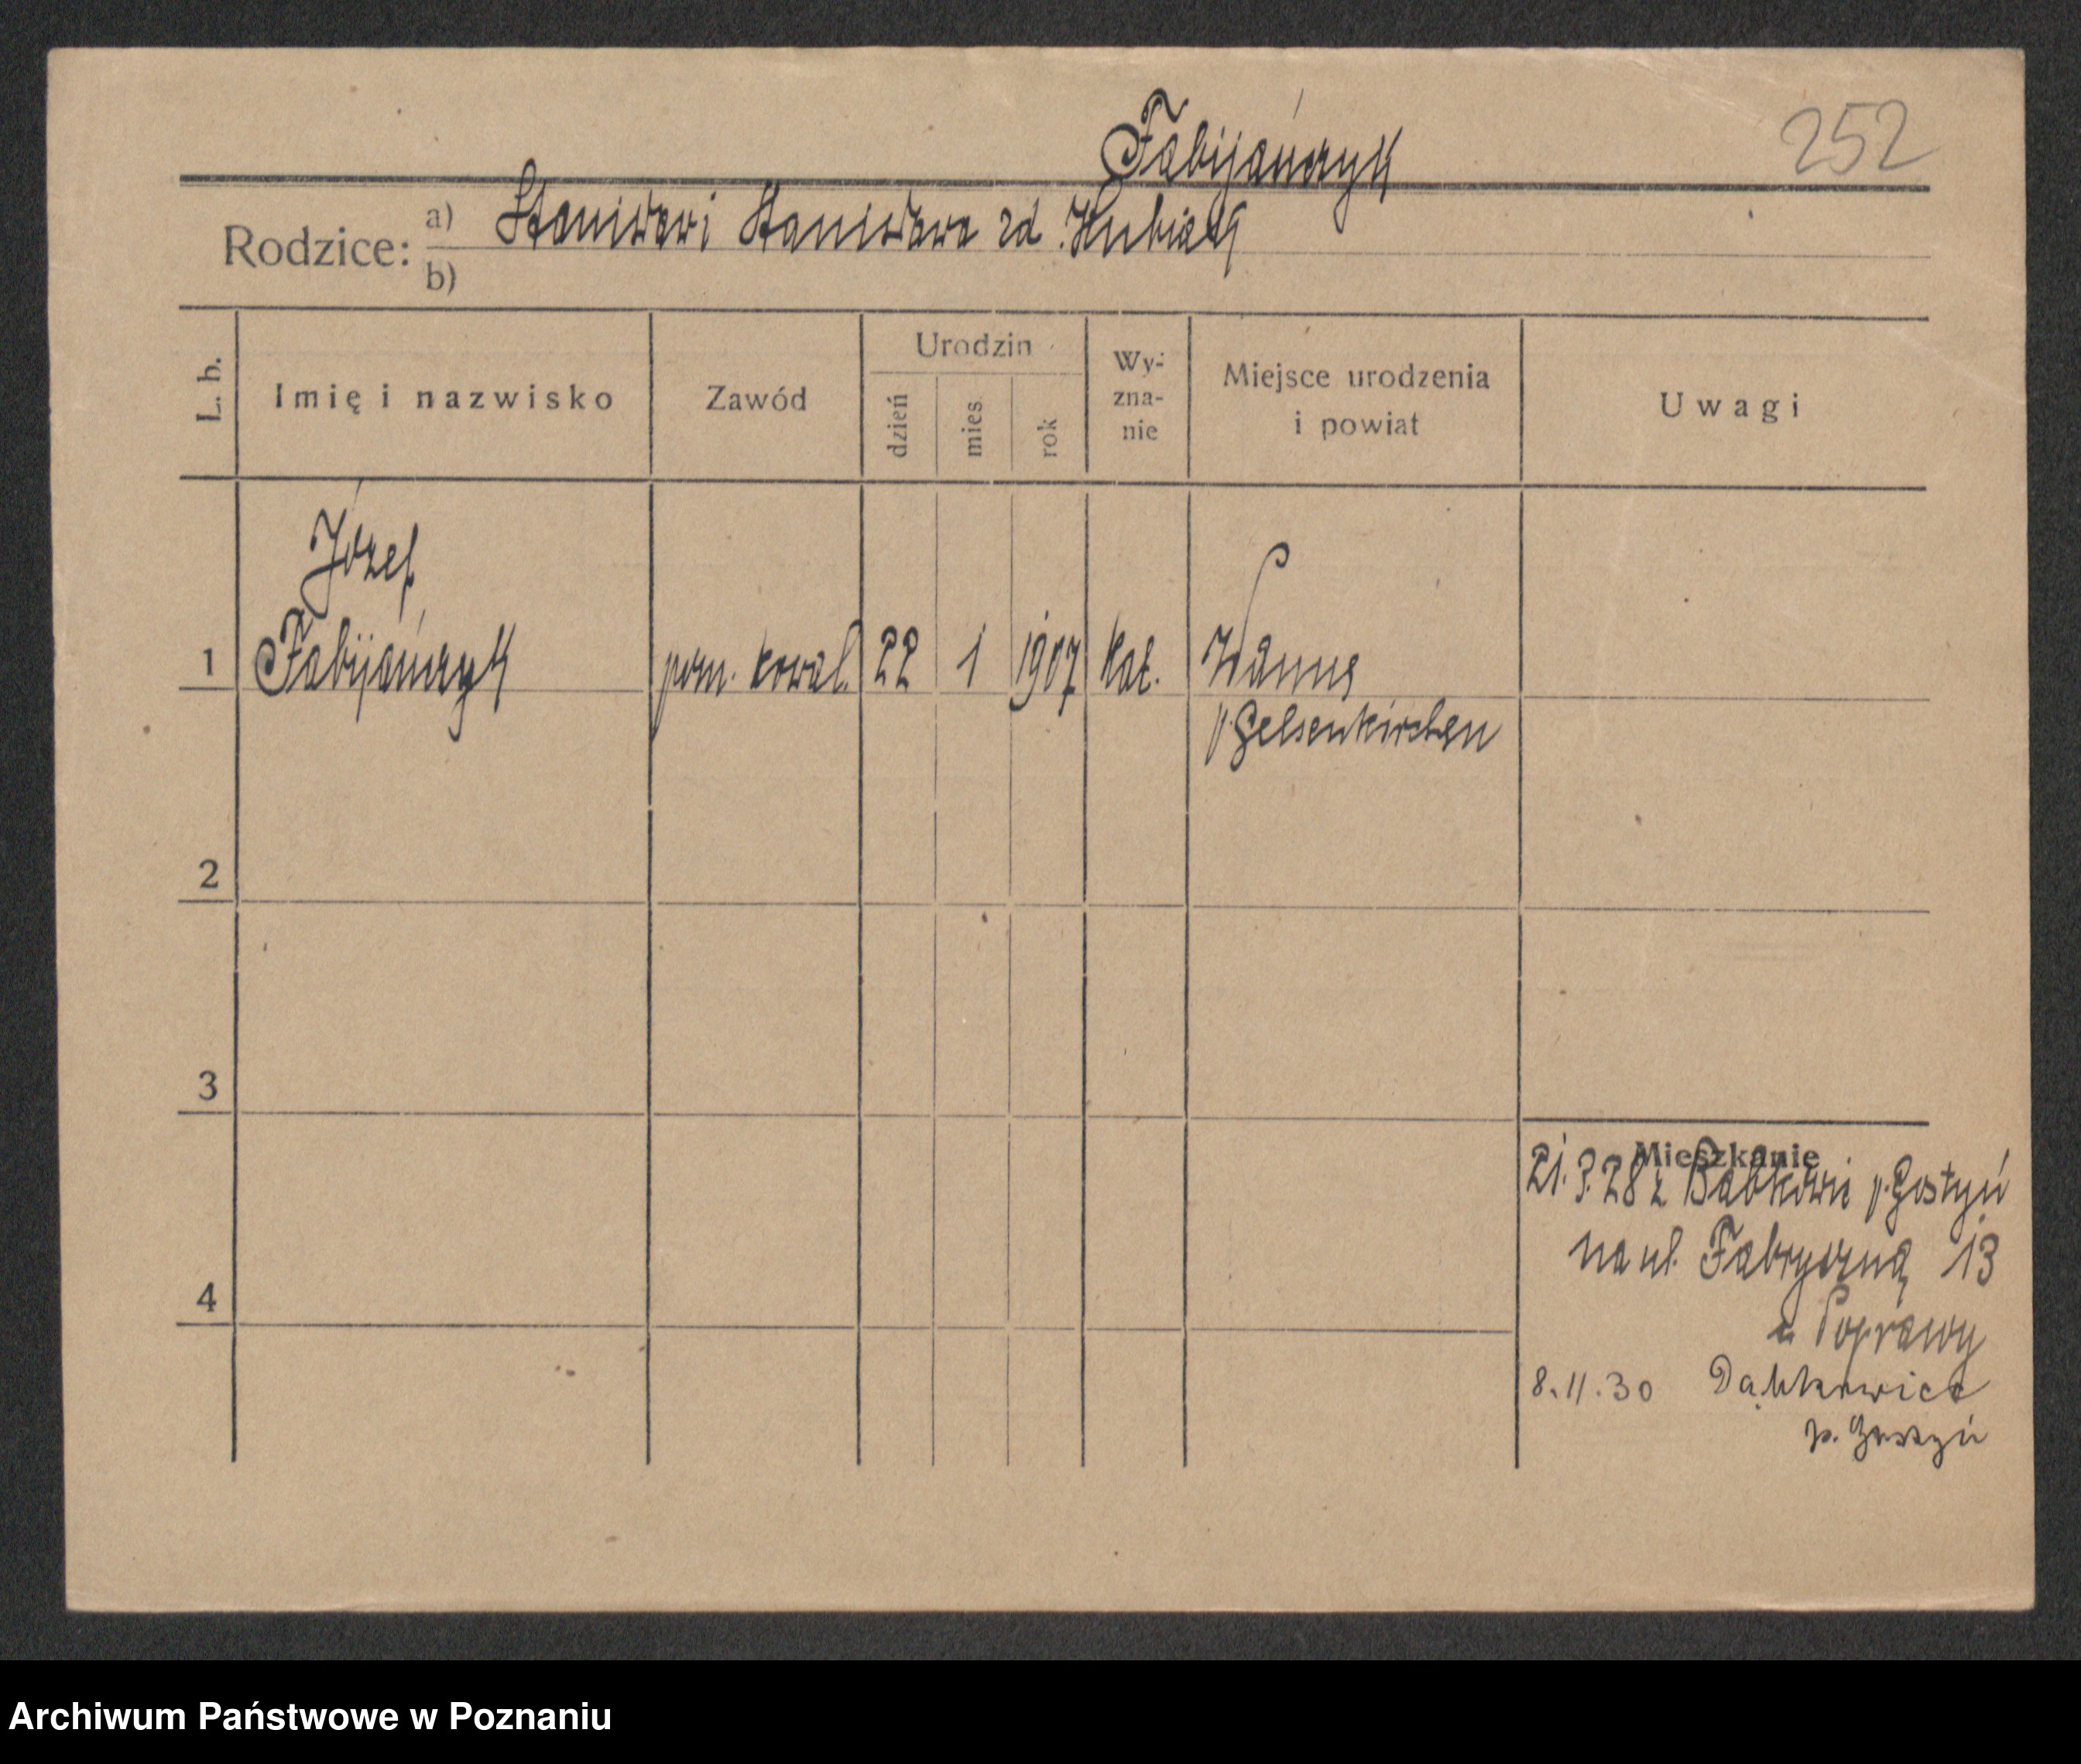 Fabijańczyk
252
Rodzice: a) Stanisław i Stanisława zd. Kubiak
b)
L. b.
Imię i nazwisko
Zawód
Urodzin
dzień
mies.
rok
Wy-
zna-
nie
Miejsce urodzenia
i powiat
Uwagi
Józef
1 Fabijańczyk pom. kowal. 22 1 1907 kat. Wanne
p. Gelsenkirchen
2
3
4
Mieszkanie
21.3.28 z Bąbkowic p. Gostyń
na ul. Fabryczną 13
u Poprawy
8.11.30 Dąbkowice
p. Gostyń
Archiwum Państwowe w Poznaniu